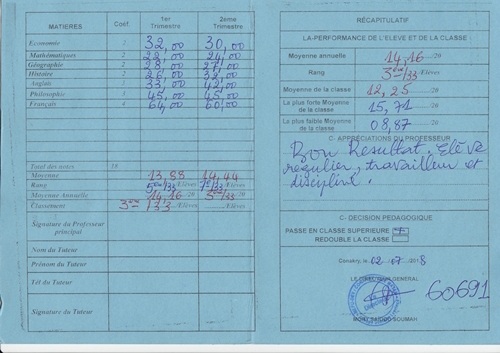 MATIERES Coef. 1er Trimestre 2eme Trimestre
Economie 2 32,00 30,00
Mathématiques 2 22,00 24,00
Géographie 2 28,00 27,00
Histoire 2 26,00 32,00
Anglais 33,00 42,00
Philosophie 3 45,00 45,00
Français 4 64,00 60,00
Total des notes 18
Moyenne 13,88 14,44
Rang 5eme/33 Elèves /33 Elèves
Moyenne Annuelle 14,16 /20 /20
Classement 3eme /33 /Elèves /Elèves
Signature du Professeur principal
Nom du Tuteur
Prénom du Tuteur
Tél du Tuteur
Signature du Tuteur
RÉCAPITULATIF
LA-PERFORMANCE DE L'ELEVE ET DE LA CLASSE
Moyenne annuelle 14,16 /20
Rang 3eme/33 /Elèves
Moyenne de la classe 12,25
La plus forte Moyenne de la classe 15,71
La plus faible Moyenne de la classe 08,87
C- APPRÉCIATIONS DU PROFESSEUR
Bon Resultat. Elève
regulier, travailleur et
discipliné.
C- DECISION PEDAGOGIQUE
PASSE EN CLASSE SUPERIEURE
REDOUBLE LA CLASSE
Conakry, le 02 07 /2018
LE DIRECTEUR GENERAL
60691
SOUMAH